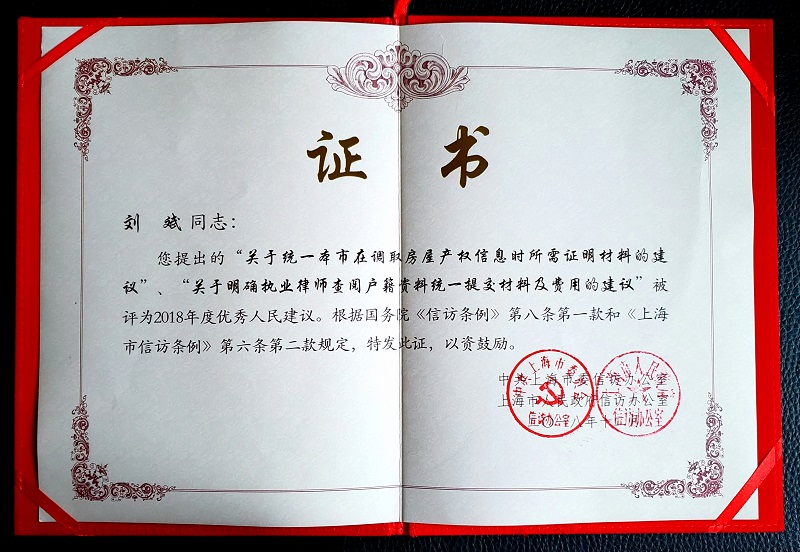 证 书
刘 斌 同志：
您提出的“关于统一本市在调取房屋产权信息时所需证明材料的建
议”、“关于明确执业律师查阅户籍资料统一提交材料及费用的建议”被
评为2018年度优秀人民建议。根据国务院《信访条例》第八条第一款和《上海
市信访条例》第六条第二款规定，特发此证，以资鼓励。
中共上海市委信访办公室
上海市人民政府信访办公室
八年十二月